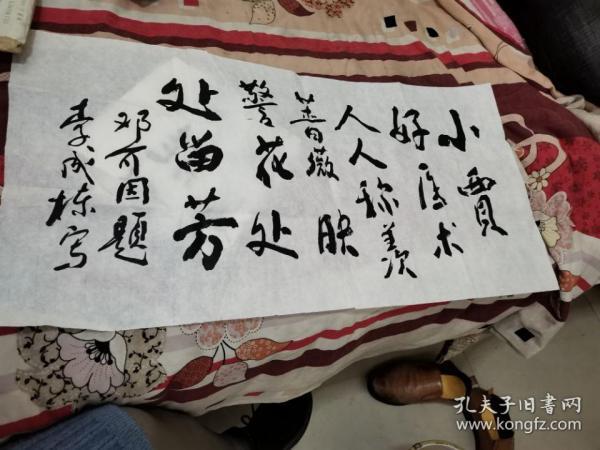 小贾
好术
人人称羡
蔷薇映
警花处
处留芳
邓可因题
李成栋写
孔夫子旧书网
www.kongfz.com